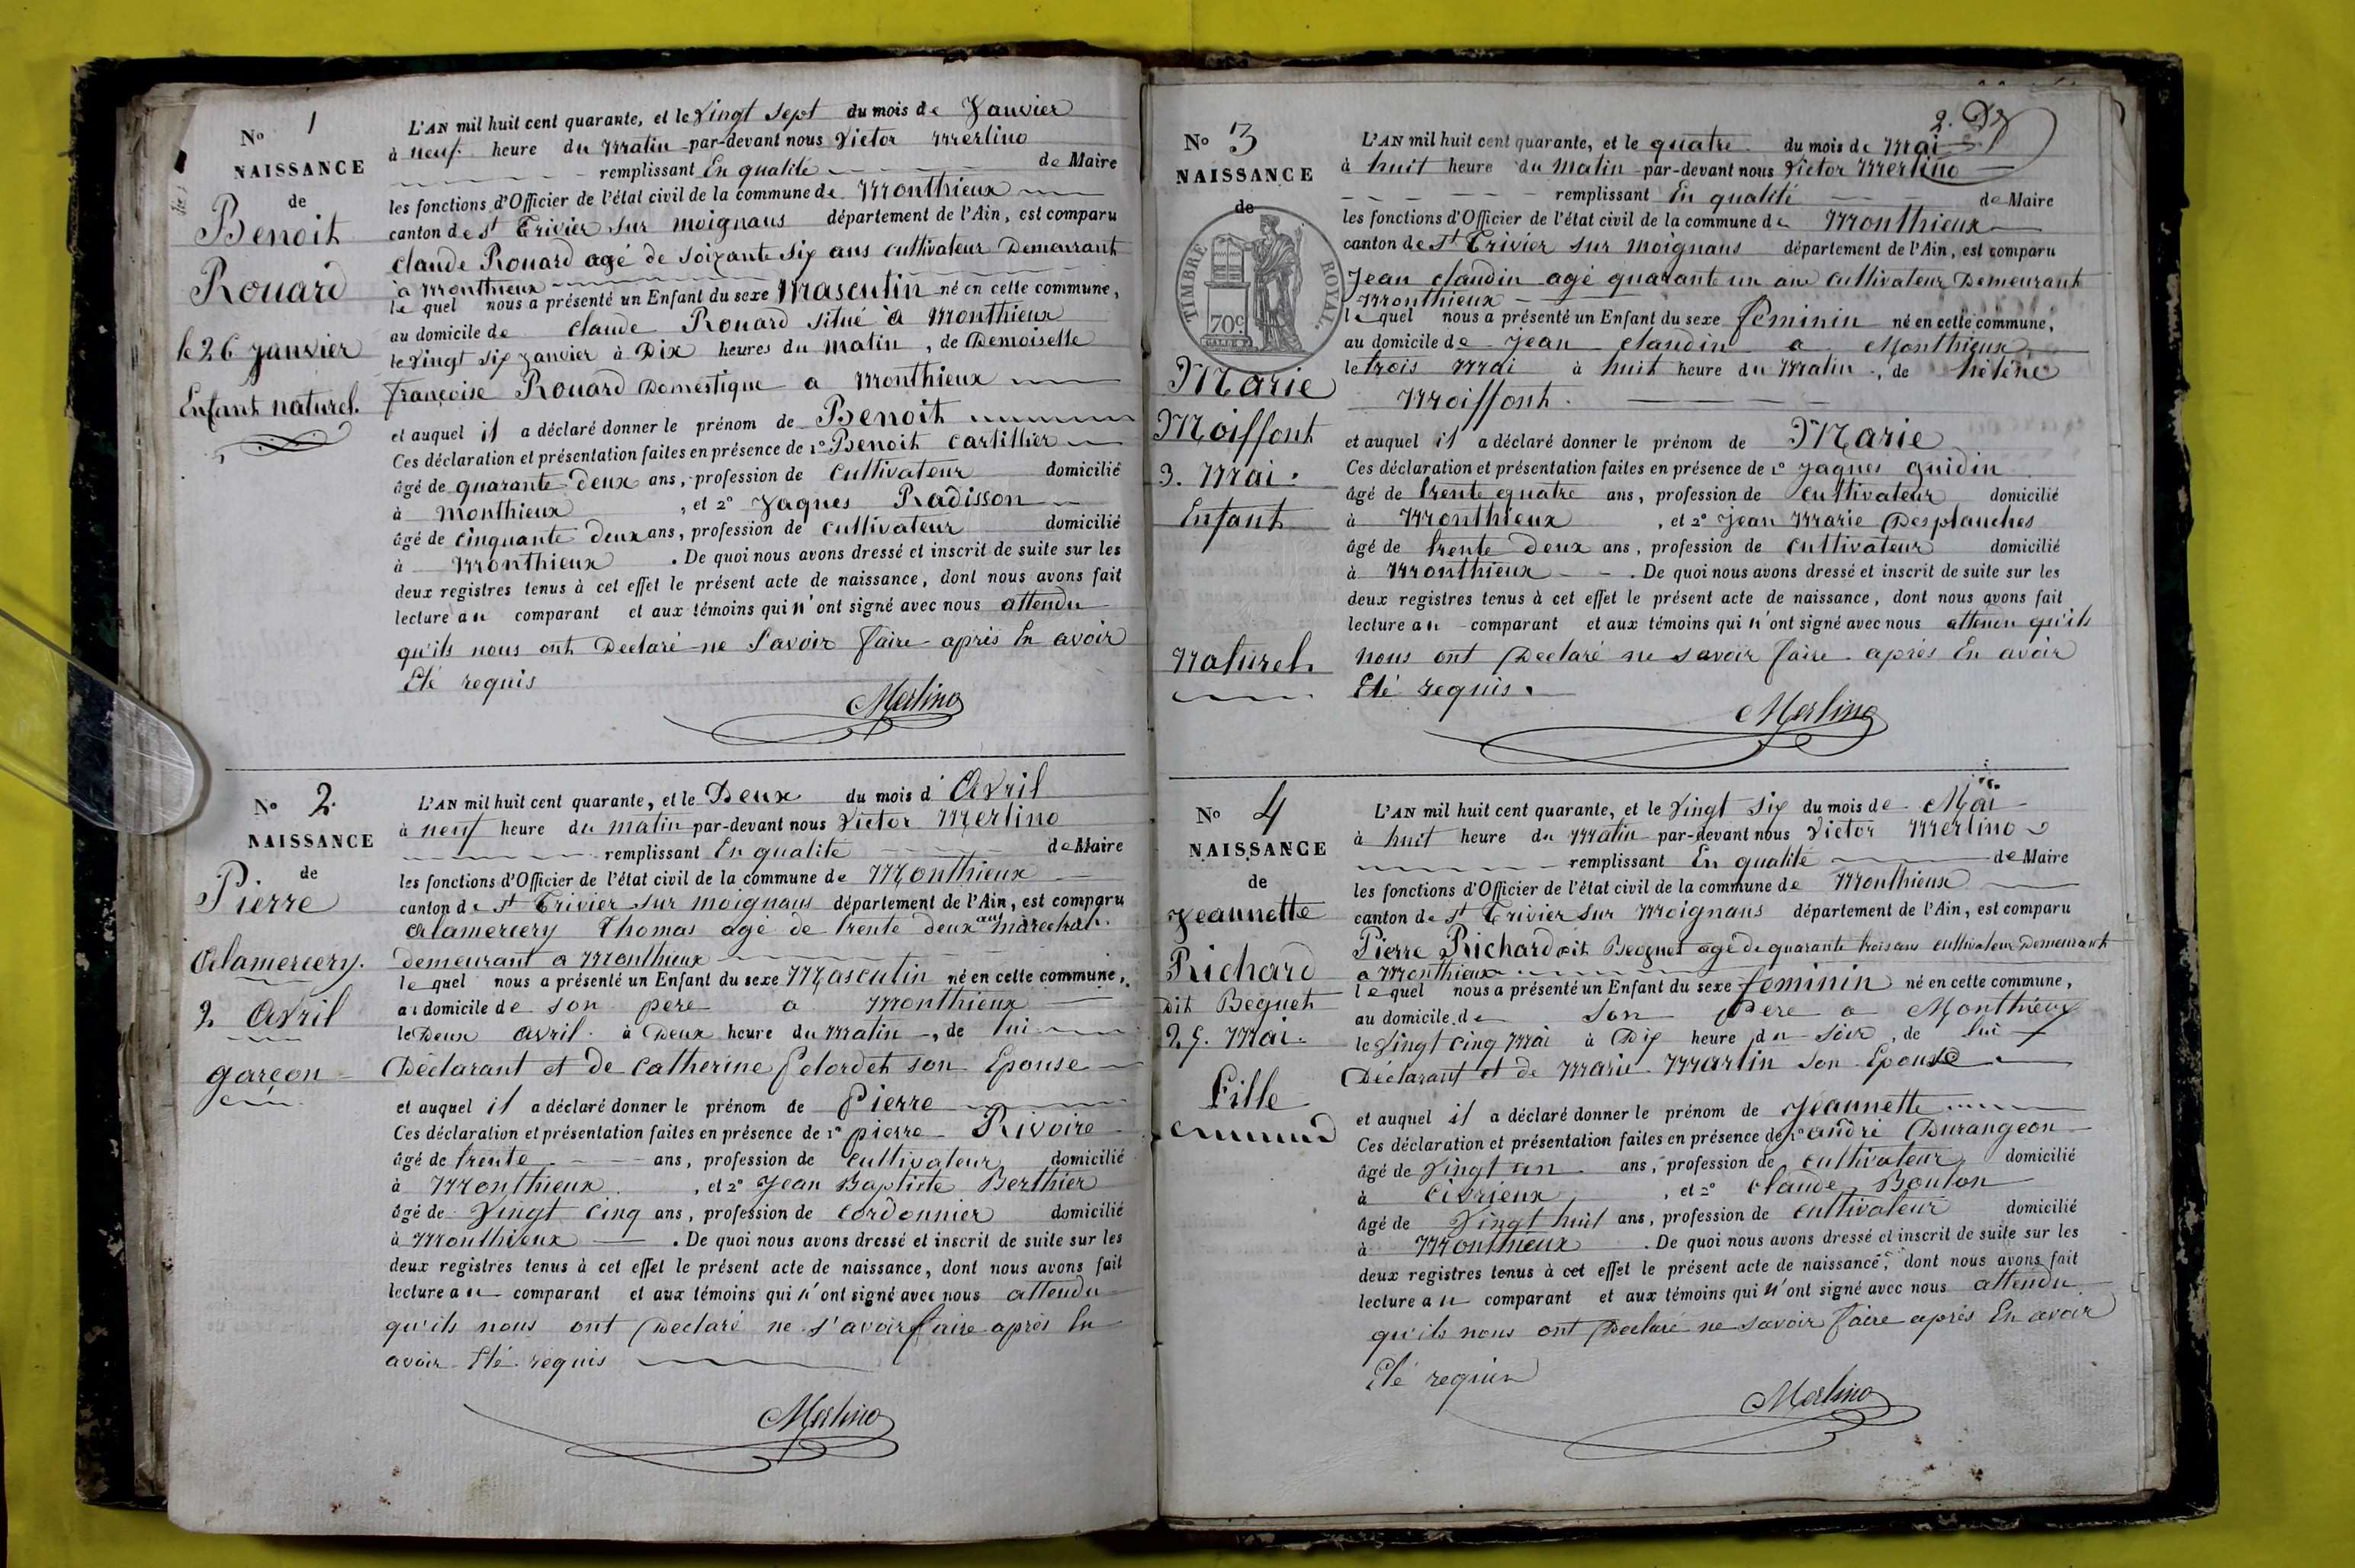 No 1
NAISSANCE
de
Benoit
Rouard
le 26 janvier
Enfant naturel.
L'AN mil huit cent quarante, et le Vingt sept du mois de Janvier
à neuf heure du Matin par-devant nous Victor Merlino
remplissant En qualité de Maire
les fonctions d'Officier de l'état civil de la commune de Monthieux
canton de St Trivier sur moignans département de l'Ain, est comparu
Claude Rouard agé de soixante six ans cultivateur Demeurant
a Monthieux
le quel nous a présenté un Enfant du sexe Masculin né en cette commune,
au domicile de Claude Rouard situé a Monthieux
le Vingt six janvier à Dix heures du matin, de Demoiselle
françoise Rouard Domestique a Monthieux
et auquel il a déclaré donner le prénom de Benoit
Ces déclaration et présentation faites en présence de 1º Benoit Cartillier
âgé de quarante deux ans, profession de Cultivateur domicilié
à Monthieux, et 2º Jaques Radisson
âgé de cinquante deux ans, profession de cultivateur domicilié
à Monthieux. De quoi nous avons dressé et inscrit de suite sur les
deux registres tenus à cet effet le présent acte de naissance, dont nous avons fait
lecture au comparant et aux témoins qui n'ont signé avec nous attendu
qu'ils nous ont Declaré ne Savoir faire après En avoir
Eté requis
Merlino
No 2.
NAISSANCE
de
Pierre
Alamercery.
2 Avril
garçon
L'AN mil huit cent quarante, et le Deux du mois d'Avril
à neuf heure du matin par-devant nous Victor Merlino
remplissant En qualité de Maire
les fonctions d'Officier de l'état civil de la commune de Monthieux
canton de St Trivier sur moignans département de l'Ain, est comparu
Alamercery Thomas agé de trente deux ans marechal.
demeurant a Monthieux
le quel nous a présenté un Enfant du sexe Masculin né en cette commune,
au domicile de son pere a Monthieux
le Deux Avril à Deux heure du Matin, de lui
Déclarant et de Catherine Pelordet son Epouse
et auquel il a déclaré donner le prénom de Pierre
Ces déclaration et présentation faites en présence de 1º pierre Rivoire
âgé de trente ans, profession de cultivateur domicilié
à Monthieux, et 2º Jean Baptiste Berthier
âgé de Vingt Cinq ans, profession de cordonnier domicilié
à Monthieux. De quoi nous avons dressé et inscrit de suite sur les
deux registres tenus à cet effet le présent acte de naissance, dont nous avons fait
lecture au comparant et aux témoins qui n'ont signé avec nous attendu
qu'ils nous ont Declaré ne s'avoir faire après En
avoir Eté requis
Merlino
No 3
NAISSANCE
de
TIMBRE ROYAL.
70c
Marie
Moiffont
3. Mai.
Enfant
Naturel.
L'AN mil huit cent quarante, et le quatre du mois de Mai
à huit heure du Matin par-devant nous Victor Merlino
remplissant En qualité de Maire
les fonctions d'Officier de l'état civil de la commune de Monthieux
canton de St Trivier sur moignans département de l'Ain, est comparu
Jean Claudin agé quarant un ans Cultivateur Demeurant
Monthieux
le quel nous a présenté un Enfant du sexe féminin né en cette commune,
au domicile de Jean Claudin a Monthieux
le trois Mai à huit heure du Matin, de héléne
Moiffont.
et auquel il a déclaré donner le prénom de Marie
Ces déclaration et présentation faites en présence de 1º Jaques Guidin
âgé de trente quatre ans, profession de Cultivateur domicilié
à Monthieux, et 2º Jean Marie Desplanches
âgé de trente deux ans, profession de Cultivateur domicilié
à Monthieux. De quoi nous avons dressé et inscrit de suite sur les
deux registres tenus à cet effet le présent acte de naissance, dont nous avons fait
lecture au comparant et aux témoins qui n'ont signé avec nous attendu qu'ils
nous ont Declaré ne savoir faire après En avoir
Eté requis.
Merlino
No 4
NAISSANCE
de
Jeannette
Richard
dit Beguet
25. Mai.
Fille
L'AN mil huit cent quarante, et le Vingt Six du mois de Mai
à huit heure du Matin par-devant nous Victor Merlino
remplissant En qualité de Maire
les fonctions d'Officier de l'état civil de la commune de Monthieux
canton de St Trivier sur Moignans département de l'Ain, est comparu
Pierre Richard dit Beguet agé de quarante trois ans cultivateur Demeurant
a Monthieux
le quel nous a présenté un Enfant du sexe feminin né en cette commune,
au domicile de son Pere a Monthieux
le Vingt Cinq Mai à Dix heure du soir, de lui
Déclarant et de Marie Martin son Epouse
et auquel il a déclaré donner le prénom de Jeannette
Ces déclaration et présentation faites en présence de 1º andré Durangeon
âgé de Vingt un ans, profession de cultivateur domicilié
à Civrieux, et 2º Claude Bouton
âgé de Vingt huit ans, profession de cultivateur domicilié
à Monthieux. De quoi nous avons dressé et inscrit de suite sur les
deux registres tenus à cet effet le présent acte de naissance, dont nous avons fait
lecture au comparant et aux témoins qui n'ont signé avec nous attendu
qu'ils nous ont Declaré ne savoir faire après En avoir
Eté requis
Merlino